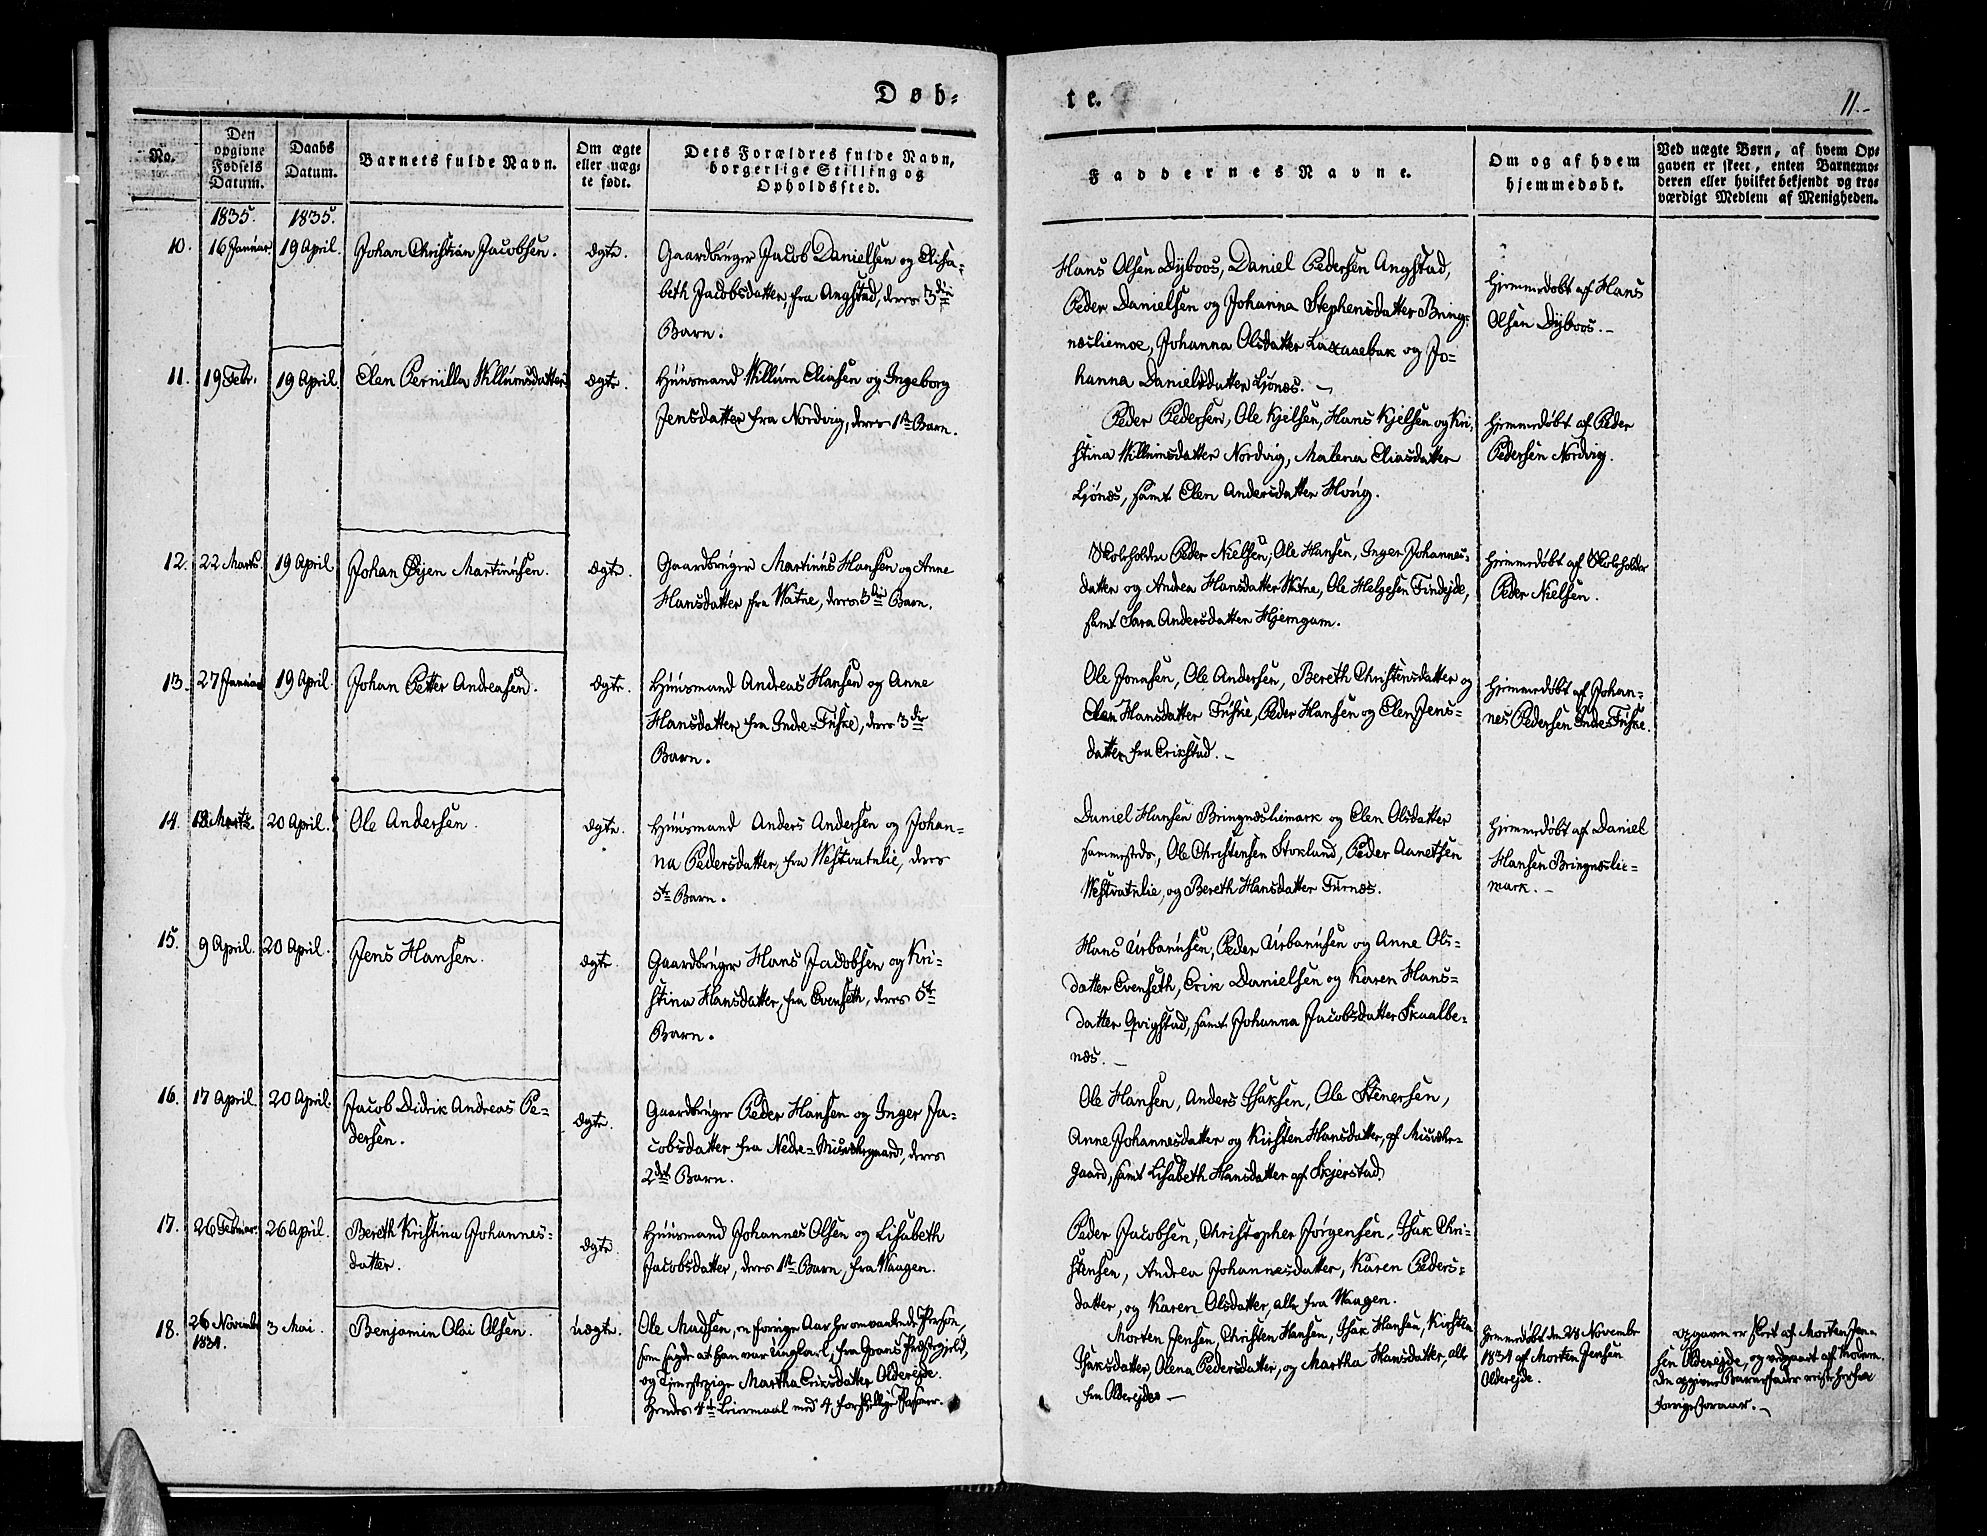 Døb-
te.
11.-
No.
Den
opgivne
Fødsels
Datum.
Daabs
Datum.
Barnets fulde Navn.
Om ægte
eller uæg-
te født.
Dets Forældres fulde Navn,
borgerlige Stilling og
Opholdssted.
Faddernes Navne.
Om og af hvem
hjemmedøbt.
Ved uægte Børn, af hvem Op-
gaven er skeet, enten Barnemo-
deren eller hvilket bekjendt og tro-
værdigt Medlem af Menigheden.
1835. 1835.
10. 16 Januar 19 April. Johan Christian Jacobsen. ægte.
Gaardbruger Jacob Danielsen og Elisa-
beth Jacobsdatter, fra Angstad, deres 3die
Barn.
Hans Olsen Dybvos, Daniel Pedersen Angstad,
Peder Danielsen og Johanna Stephensdatter Bring-
næsliemoe, Johanna Olsdatter Laxaaebak og Jo-
hanna Danielsdatter Ljønes. -
Hjemmedøbt af Hans
Olsen Dybvos. -
11. 19 Febr. 19 April. Elen Pernilla Willumsdatter ægte.
Huusmand Willum Eliasen og Ingeborg
Jensdatter fra Nordvig, deres 1te Barn.
Peder Pedersen, Ole Kjelsen, Hans Kjelsen og Kri-
stina Willumsdatter Nordvig, Malena Eliasdatter
Ljønes, samt Elen Andersdatter Houg.
Hjemmedøbt af Peder
Pedersen Nordvig.
12. 22 Marts 19 April Johan Øyen Martinusen. ægte.
Gaardbruger Martinus Hansen og Anne
Hansdatter fra Watne, deres 3die Barn.
Skoleholder Peder Nielsen, Ole Hansen, Inger Johannes-
datter og Andrea Hansdatter Watne, Ole Helgesen Findejde,
samt Sara Andersdatter Hjemgam.
Hjemmedøbt af Skoleholder
Peder Nielsen.
13. 27 Januar 19 April Johan Petter Andreasen. ægte.
Huusmand Andreas Hansen og Anne
Hansdatter, fra Indre-Fuske, deres 3die
Barn.
Ole Jonasen, Ole Andersen, Bereth Christensdatter og
Elen Hansdatter Fuske, Peder Hansen og Elen Jens-
datter fra Erikstad. -
Hjemmedøbt af Johan-
nes Pedersen Indre Fuske.
14. Marts. 20 April. Ole Andersen. ægte.
Huusmand Anders Andersen og Johan-
na Pedersdatter, fra Westvatnlie, deres
5te Barn.
Daniel Hansen Bringnæsliemark og Elen Olsdatter
sammesteds, Ole Christensen Stokland, Peder Aanetsen
Westvatnlie, og Bereth Hansdatter Furnes.
Hjemmedøbt af Daniel
Hansen Bringnæslie-
mark. -
15. 9 April. 20 April. Jens Hansen. ægte.
Gaardbruger Hans Jacobsen og Kri-
stina Hansdatter, fra Evenseth, deres 5te
Barn.
Hans Urbanusen, Peder Urbanusen og Anne Ols-
datter Evenseth, Erik Danielsen og Karen Hans-
datter Qvigstad, samt Johanna Jacobsdatter Skaalbe-
næs. -
16. 17 April. 20 April. Jacob Didrik Andreas Pe-
dersen. ægte.
Gaardbruger Peder Hansen og Inger Ja-
cobsdatter fra Nedre-Misværgaard, deres
2det Barn.
Ole Hansen, Anders Isaksen, Ole Stenersen,
Anne Johannesdatter og Kirsten Hansdatter, af Misvær-
gaard, samt Lisabeth Hansdatter af Skjerstad.
17. 26 Februar. 26 April. Bereth Kristina Johannes-
datter. ægte.
Huusmand Johannes Olsen og Lisabeth
Jacobsdatter, deres 1te Barn, fra Waagen.
Peder Jacobsen, Christopher Jørgensen, Isak Chri-
stensen, Andrea Johannesdatter, Karen Peders-
datter, og Karen Olsdatter, alle fra Waagen.
18. 26 Novembr
1834. 3 Mai. Benjamin Olai Olsen. uægte.
Ole Madsen, en forrige Aar her omvankende Person,
som sagde at han var Ungkarl, fra Grans Præstegjeld,
og Tjenestepige Martha Eriksdatter Olderejde.
Hendes 4de Leiermaal med 4 forskellige Personer.
Morten Jensen, Christen Hansen, Isak Hansen, Kirsten
Isaksdatter, Olena Pedersdatter, og Martha Hansdatter, alle
fra Olderejde. -
Hjemmedøbt den 28 Novembr
1834 af Morten Jensen
Olderejde.
Opgaven er skeet af Morten Jen-
sen Olderejde, og vedgaaet af Moderen.
Den opgivne Barnefader reiste herfra
forrige Foraar. -